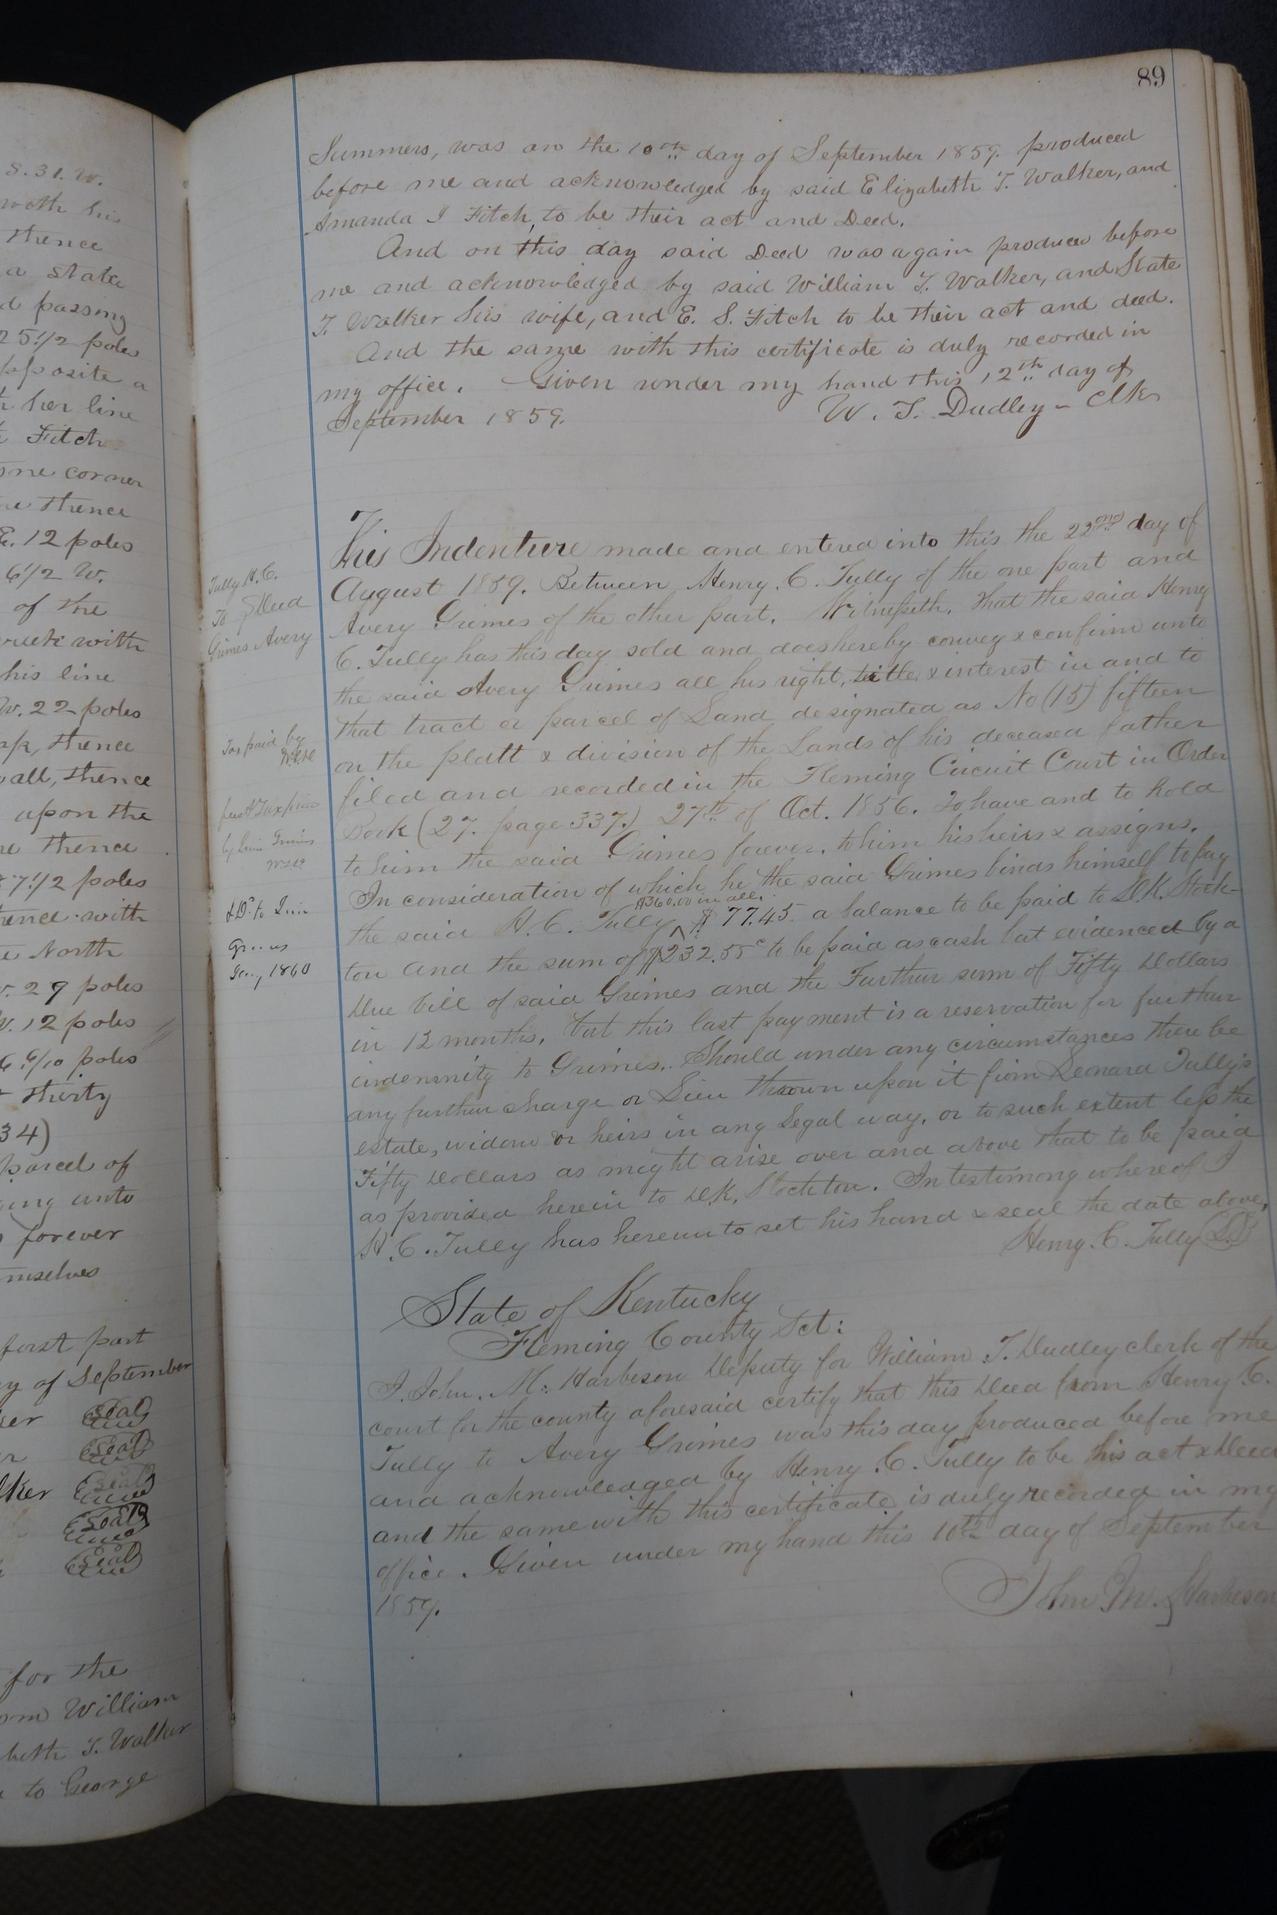 89
Summers, was on the 10th day of September 1859. produced
before me and acknowledged by said Elizabeth T. Walker, and
Amanda J Fitch, to be their act and Deed.
And on this day said Deed was again produced before
me and acknowledged by said William T. Walker, and State
T. Walker his wife, and E. S. Fitch to be their act and deed.
And the same with this certificate is duly recorded in
my office. Given under my hand this 12th day of
September 1859. W. T. Dudley - Clk
This Indenture made and entered into this the 22nd day of
August 1859. Between Henry. C. Tully of the one part and
Avery Grimes of the other part. Witnesseth. That the said Henry
C. Tully has this day sold and does hereby convey & confirm unto
the said Avery Grimes all his right, title & interest in and to
that tract or parcel of Land designated as No (15) fifteen
on the platt & division of the Lands of his deceased father
filed and recorded in the Fleming Circuit Court in Order
Book (27. page 337.) 27th of Oct. 1856. To have and to hold
to him the said Grimes forever. to him his heirs & assigns.
In consideration of which he the said Grimes binds himself to pay
$360.00 in all.
the said H. C. Tully $77.45 a balance to be paid to D.K. Stock-
ton and the sum of $232.55c to be paid as cash but evidenced by a
Due bill of said Grimes and the Further sum of Fifty Dollars
in 12 months, but this last payment is a reservation for further
indemnity to Grimes. Should under any circumstances there be
any further charge or Lien thrown upon it from Leonard Tully's
estate, widow or heirs in any Legal way, or to such extent less the
Fifty Dollars as might arise over and above that to be paid
as provided herein to D.K. Stockton. In testimony whereof I
H. C. Tully has hereunto set his hand & seal the date above.
Henry. C. Tully
State of Kentucky
Fleming County Sct:
I. John. M. Harbeson Deputy for William T. Dudley clerk of the
court for the county aforesaid certify that this Deed from Henry C.
Tully to Avery Grimes was this day produced before me
and acknowledged by Henry. C. Tully to be his act & Deed
and the same with this certificate is duly recorded in my
office. Given under my hand this 10th day of September
1859. John M. Harbeson
Tully H. C.
To Deed
Grimes Avery
Tax paid by
&
Jany 1860
S. 31. W.
with his
thence
a stake
d passing
25 1/2 poles
opposite a
her line
Fitch
corner
thence
E. 12 poles
6 1/2 W.
of the
with
his line
W. 22 poles
thence
thence
upon the
thence
7 1/2 poles
with
North
29 poles
W. 12 poles
poles
thirty
34)
parcel of
unto
forever
first part
of September
Seal
Seal
Seal
Seal
Seal
for the
William
T. Walker
to George